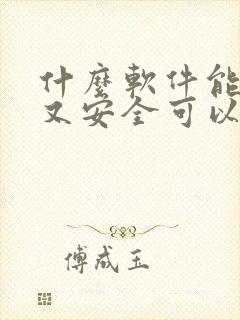 什麼軟件能
又安全可以
傅成玉